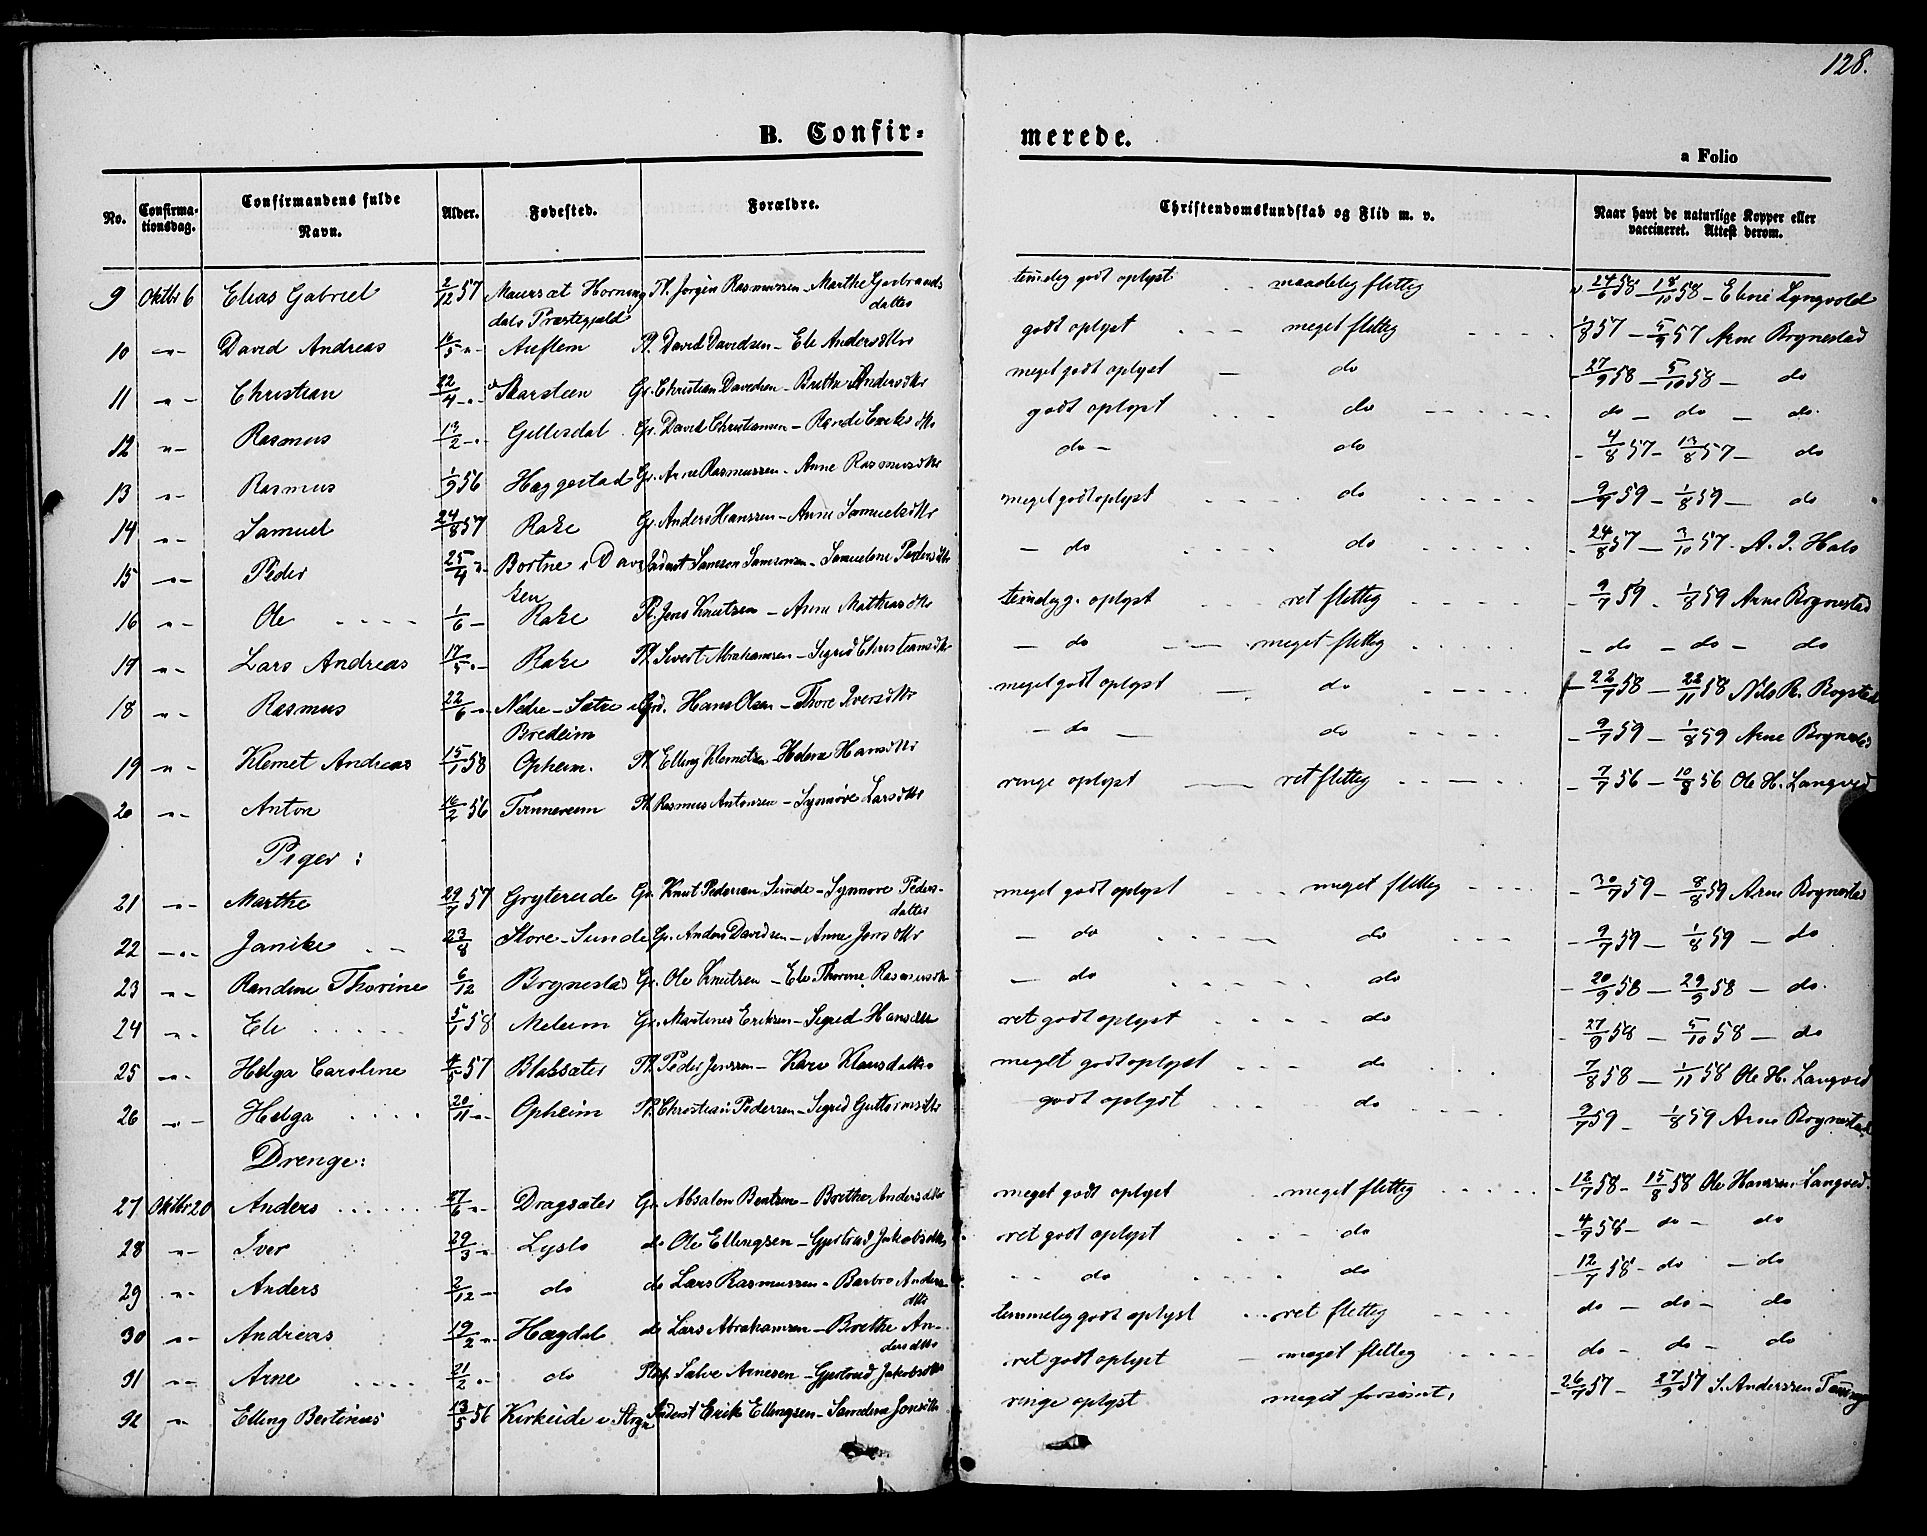 128.
B. Confir-
merede.
a Folio
No.
Confirma-
tionsdag.
Confirmandens fulde
Navn.
Alder.
Fødested.
Forældre.
Christendomskundskab og Flid m. v.
Naar havt de naturlige Kopper eller
vaccineret. Attest derom.
9 Oktbr 6 Elias Gabriel 2/12 57 Maursæt Horning Pl. Jørgen Rasmussen - Marthe temelig godt oplyst .. maadelig flittig 24/6 58 - 18/10 58 - Lyngvold
dals Præstegjeld datter
10 -"- David Andreas 5 "- Auflem Pl. David Davidsen - Eli Andersdttr godt oplyst - - - meget flittig - - - - 1/8 57 - 5/9 57 Arne Brynestad
11 "- Christian 22/4 -"- Starsteen Gr. Christian Davidsen - Brithe Andersdttr meget godt oplyst - do - 27/9 58 - 5/10 58 - do
12 "- Rasmus 13/2 -" Gillesdal Gr. David Christiansen - Rande dttr godt oplyst - - - do - - - - - do - do - do.
13 "- Rasmus 1/9 56 Heggestad Gr. Arne Rasmussen - Anne Rasmusdttr do - do - 4/8 57 - 13/8 57 - do
14 "- Samuel 24/8 57 Rake Gr. Anders Hanssen - Anne Samuelsdttr meget godt oplyst - - - - do - - - - - 9/7 59 - 1/8 59 - do
15 -"- Peder 25/4 "- Bortne i Dav Inderst Samson Samsonsen - Samueline Pedersdttr - do - - - - do - - - - - 24/8 57 - 3/10 57 - A. J. Hals
ken
16 "- Ole - - - - 1/6 - Rake Pl. Jens Knutsen - Anne Matthiasdttr temelig. oplyst - - - ret flittig - - - - 9/7 59 - 1/8 59 Arne Brynestad
17 "- Lars Andreas 17/5 "- Rake Pl. Sivert Abrahamsen - Sigrid Christiansdttr - do - - meget flittig - - - - - - do - do - do
18 "- Rasmus 22/6 "- Nedre-Sætre i Grd. Hans Olsen - Thore Iversdttr meget godt oplyst - do - - - - - 22/7 58 - 22/11 58 Nils R. Brystad
Bredeim
19 "- Klemet Andreas 15/1 58 Opheim. Pl. Elling Klemetsen - Helene Hansdttr - do - do - - - - 9/7 59 - 1/8 59 Arne Brynestad
20 "- Anton 16/2 56 Tvinnereim Pl. Rasmus Antonsen - Synnøve Larsdttr ringe oplyst - ret flittig - - - - 7/7 56 - 10/8 56 Ole H. Langved
Piger:
21 "- Marthe 29/7 57 Grytereide Gr. Knut Pedersen Sunde - Synnøve Peders- meget godt oplyst - - - meget flittig - - - - 30/7 59 - 8/8 59 Arne Brynestad
datter
22 -"- Janike - - 23/8 Store-Sunde Gr. Anders Davidsen - Anne Jonsdttr - do - - - - do - - - - 9/7 59 - 1/8 59 - do
23 "- Randine Thorine 6/12 Brynestad Gr. Ole Knutsen - Eli Thorine Rasmusdttr - do - - - - - do - 20/9 58 - 29/9 58 - do.
24 "- Eli - - - - - 5/1 58 Meleim Gr. Martines Eriksen - Sigrid Hansdttr ret godt oplyst - - - - do - 27/9 58 - 5/10 58 - do
25 "- Helga Caroline 4/5 57 Blaksæter Pl. Peder Jenssen - Kari Klausdatter meget godt oplyst - - - do - - 7/8 58 - 1/11 58 Ole H. Langved
26 "- Helga - - - - 20/11 "- Opheim Pl. Christian Pedersen - Sigrid Guttormsdttr godt oplyst - - - do - - - - 9/7 59 - 1/8 59 Arne Brynestad
Drenge:
27 Oktbr 20 Anders - - - - - 27/6 "- Dragsæter Gr. Absalon Bentsen - Brethe Andersdttr meget godt oplyst - meget flittig - - - - - 12/7 58 - 15/8 58 Ole Hanssen Langved.
28 "- Iver 29/3 "- Lyslo do Ole Ellingsen - Gjertrud Jakobsdttr ret godt oplyst - - - do - 4/7 58 - do - do
29 "- Anders 2/12 - do do Lars Rasmussen - Barbro Anders - - do - - - - do - 12/7 58 - do - do
dttr
30 "- Andreas 19/2 "- Hægdal do Lars Abrahamsen - Brethe An- temmelig godt oplyst - ret flittig - - - - do - do - do
dersdttr
31 "- Arne - - - - 21/2 "- do Salve Arnesen - Gjertrud Jakobsdttr ret godt oplyst - meget flittig - - - - - do - do - do
32 "- Elling Bertinius 13/5 56 Kirkeide i Stryn Inderst Erik Ellingsen - Jonsdttr ringe oplyst meget forsømt, 26/7 57 - 27/9 57 S. Anderssen